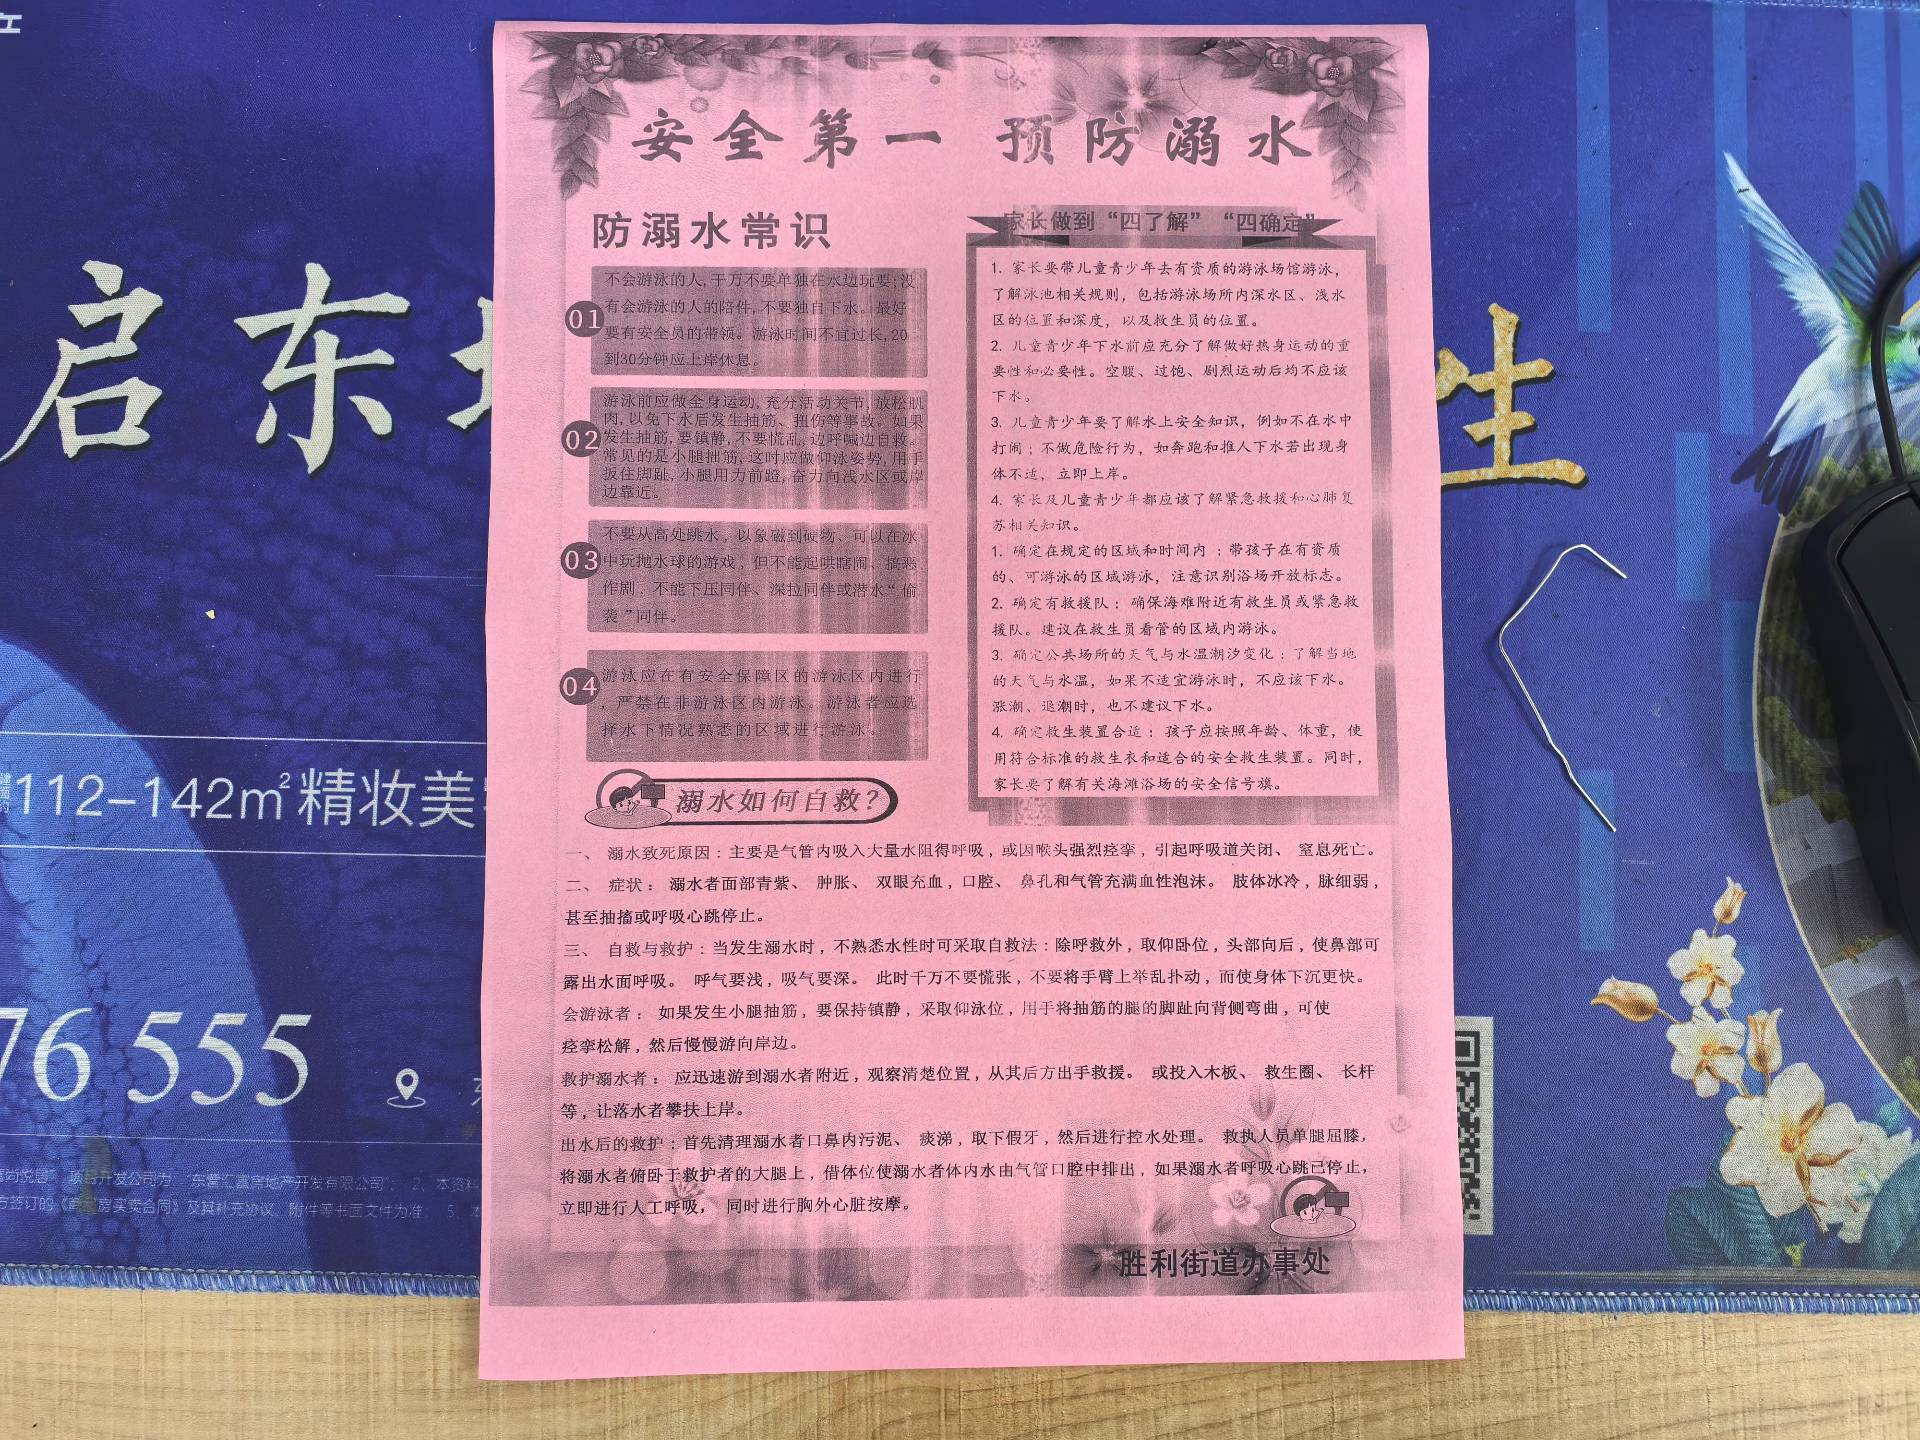 安全第一 预防溺水
防溺水常识
01
不会游泳的人,千万不要单独在水边玩耍;没
有会游泳的人的陪伴,不要独自下水。最好
要有安全员的带领。游泳时间不宜过长,20
到30分钟应上岸休息。
02
游泳前应做全身运动,充分活动关节,放松肌
肉,以免下水后发生抽筋、扭伤等事故。如果
发生抽筋,要镇静,不要慌乱,边呼喊边自救。
常见的是小腿抽筋,这时应做仰泳姿势,用手
扳住脚趾,小腿用力前蹬,奋力向浅水区或岸
边靠近。
03
不要从高处跳水，以象磁到硬物、可以在冰
中玩抛水球的游戏，但不能起哄瞎闹、搞恶
作剧，不能下压同伴、深拉同伴或潜水“偷
袭”同伴。
04
游泳应在有安全保障区的游泳区内进行
，严禁在非游泳区内游泳。游泳者应选
择水下情况熟悉的区域进行游泳。
家长做到“四了解”“四确定”
1. 家长要带儿童青少年去有资质的游泳场馆游泳，
了解泳池相关规则，包括游泳场所内深水区、浅水
区的位置和深度，以及救生员的位置。
2. 儿童青少年下水前应充分了解做好热身运动的重
要性和必要性。空腹、过饱、剧烈运动后均不应该
下水。
3. 儿童青少年要了解水上安全知识，例如不在水中
打闹；不做危险行为，如奔跑和推人下水若出现身
体不适，立即上岸。
4. 家长及儿童青少年都应该了解紧急救援和心肺复
苏相关知识。
1. 确定在规定的区域和时间内：带孩子在有资质
的、可游泳的区域游泳，注意识别浴场开放标志。
2. 确定有救援队：确保海难附近有救生员或紧急救
援队。建议在救生员看管的区域内游泳。
3. 确定公共场所的天气与水温潮汐变化：了解当地
的天气与水温，如果不适宜游泳时，不应该下水。
涨潮、退潮时，也不建议下水。
4. 确定救生装置合适：孩子应按照年龄、体重，使
用符合标准的救生衣和适合的安全救生装置。同时，
家长要了解有关海滩浴场的安全信号旗。
溺水如何自救？
一、 溺水致死原因：主要是气管内吸入大量水阻得呼吸，或因喉头强烈痉挛，引起呼吸道关闭、 窒息死亡。
二、 症状： 溺水者面部青紫、 肿胀、 双眼充血，口腔、 鼻孔和气管充满血性泡沫。 肢体冰冷，脉细弱，
甚至抽搐或呼吸心跳停止。
三、 自救与救护：当发生溺水时，不熟悉水性时可采取自救法：除呼救外，取仰卧位，头部向后，使鼻部可
露出水面呼吸。 呼气要浅，吸气要深。 此时千万不要慌张，不要将手臂上举乱扑动，而使身体下沉更快。
会游泳者： 如果发生小腿抽筋，要保持镇静，采取仰泳位，用手将抽筋的腿的脚趾向背侧弯曲，可使
痉挛松解，然后慢慢游向岸边。
救护溺水者： 应迅速游到溺水者附近，观察清楚位置，从其后方出手救援。 或投入木板、 救生圈、 长杆
等，让落水者攀扶上岸。
出水后的救护：首先清理溺水者口鼻内污泥、 痰涕，取下假牙，然后进行控水处理。 救执人员单腿屈膝，
将溺水者俯卧于救护者的大腿上，借体位使溺水者体内水由气管口腔中排出，如果溺水者呼吸心跳已停止，
立即进行人工呼吸， 同时进行胸外心脏按摩。
胜利街道办事处
启东
生
112-142m²精妆美
76 555